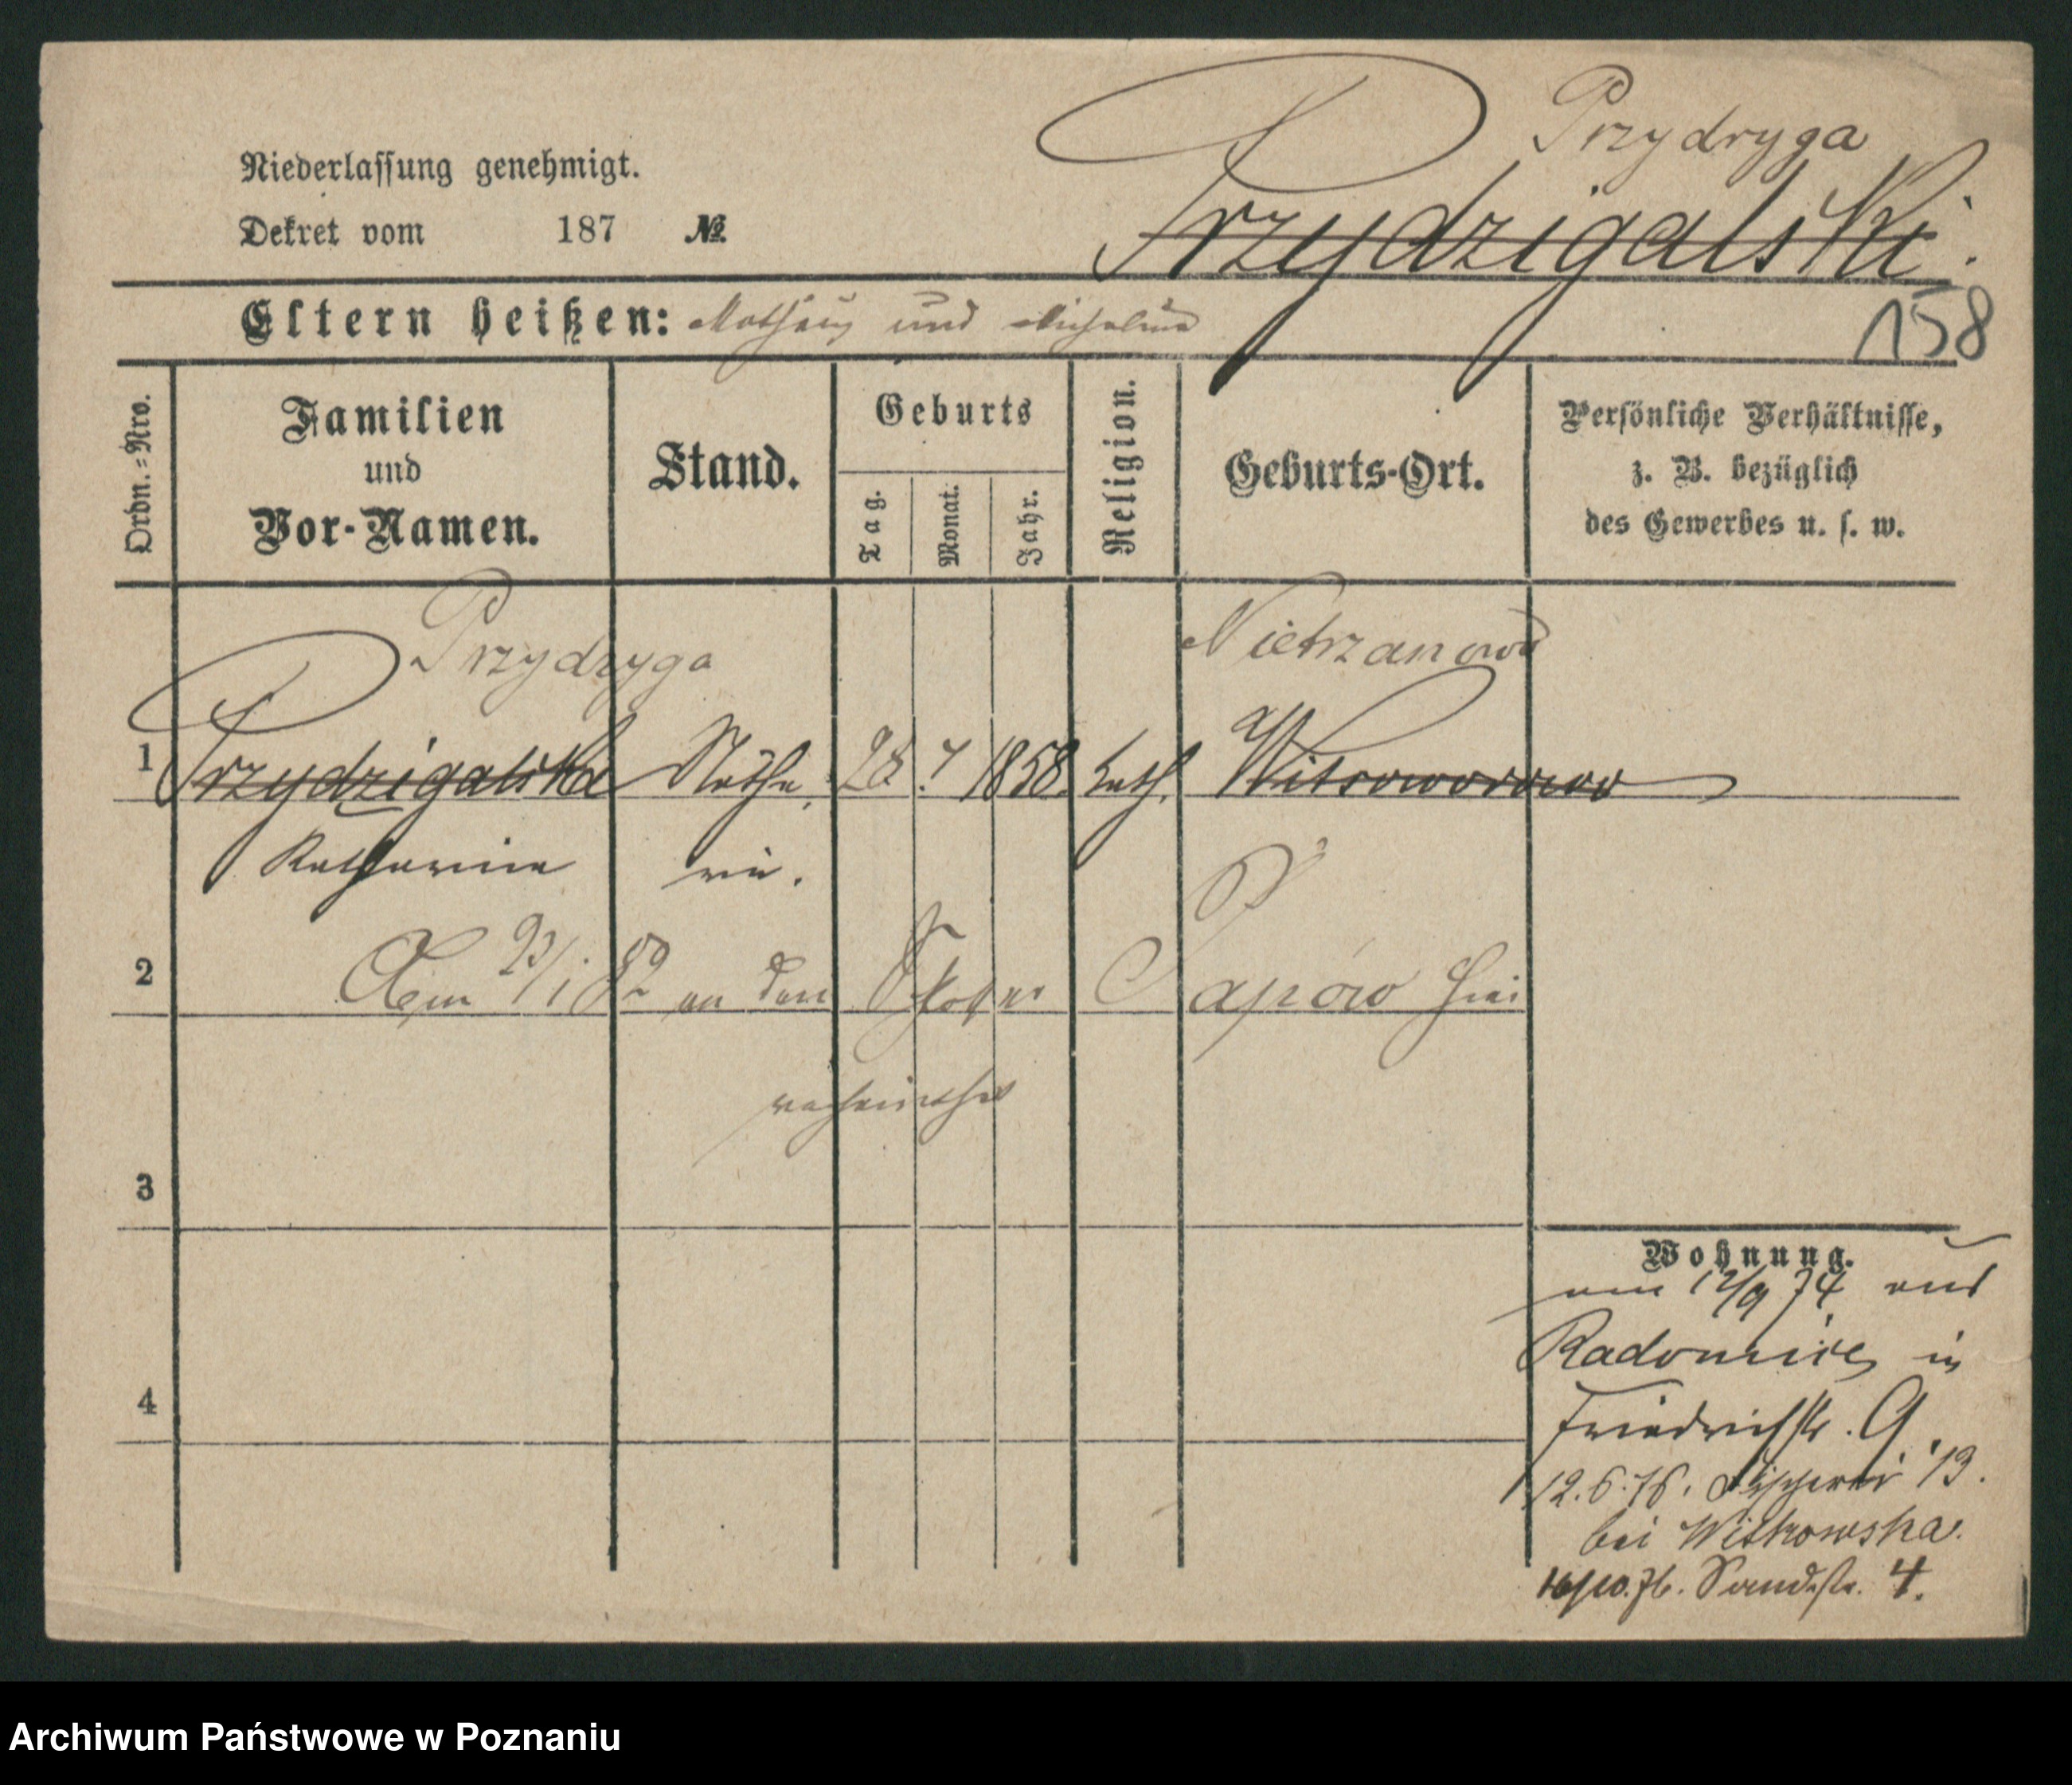 Przydryga
Niederlassung genehmigt.
Przydzigalski.
Dekret vom 187 №
158
Eltern heißen: Mathäus und Michalina
Ordn.=Nro.
Familien
und
Vor-Namen.
Stand.
Geburts
Tag.
Monat.
Jahr.
Religion.
Geburts-Ort.
Persönliche Verhältnisse,
z. B. bezüglich
des Gewerbes u. s. w.
Przydryga Nietrzanowo
1 Przydzigalska Näthe 28. 7 1858. kath.
Katharina rin.
P
2 Am 23/1 82 an den Capów hier
verheirathet
3
Wohnung.
am 12/9 74 aus
Radomice in
4
Friedrichstr. 9.
12.6.76. Fischerei 13.
bei Witkowska.
16/10.76. Sandstr. 4.
Archiwum Państwowe w Poznaniu